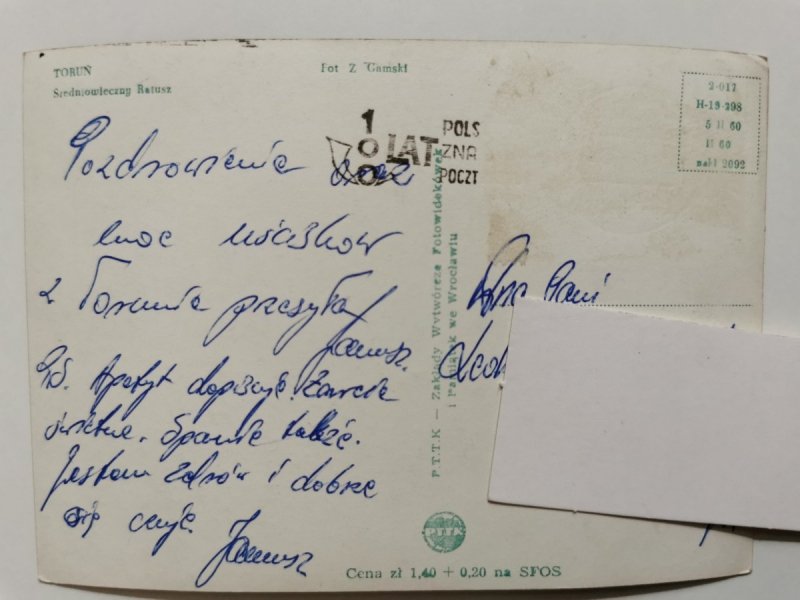 TORUŃ
Średniowieczny Ratusz
Fot Z Gamski
2-017
H-19-298
5 II 60
II 60
nakł 2092
100 LAT
POLS
ZNA
POCZT
Pozdrowienia oraz
moc uścisków
z Torunia przesyła
Janusz.
PS. Apetyt dopisuje. Żarcie
świetne. Spanie także.
Jestem zdrów i dobrze
się czuję.
Janusz
Pani
P.T.T.K — Zakłady Wytwórcze Fotowidokówek
i Pamiątek we Wrocławiu
PTTK
Cena zł 1,40 + 0,20 na SFOS